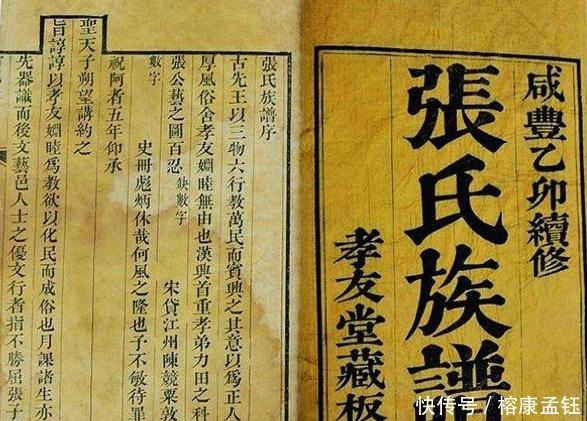 咸豐乙卯續修
張氏族譜
孝友堂藏板
張氏族譜序
古先王以三物六行教萬民而賓興之其意以為正人
厚風俗舍孝友婣睦無由也漢興首重孝弟力田之科
張公藝之圖百忍缺數字 宋貸江州陳競粟敦
數字 史冊彪炳休哉何風之隆也予不敏待罪
祝阿者五年仰承
聖天子朔望講約之
旨諄諄以孝友婣睦爲教欲以化民而成俗也月課諸生亦
先器識而後文藝邑人士之優文行者指不勝屈張子
快传号/榕康孟钰